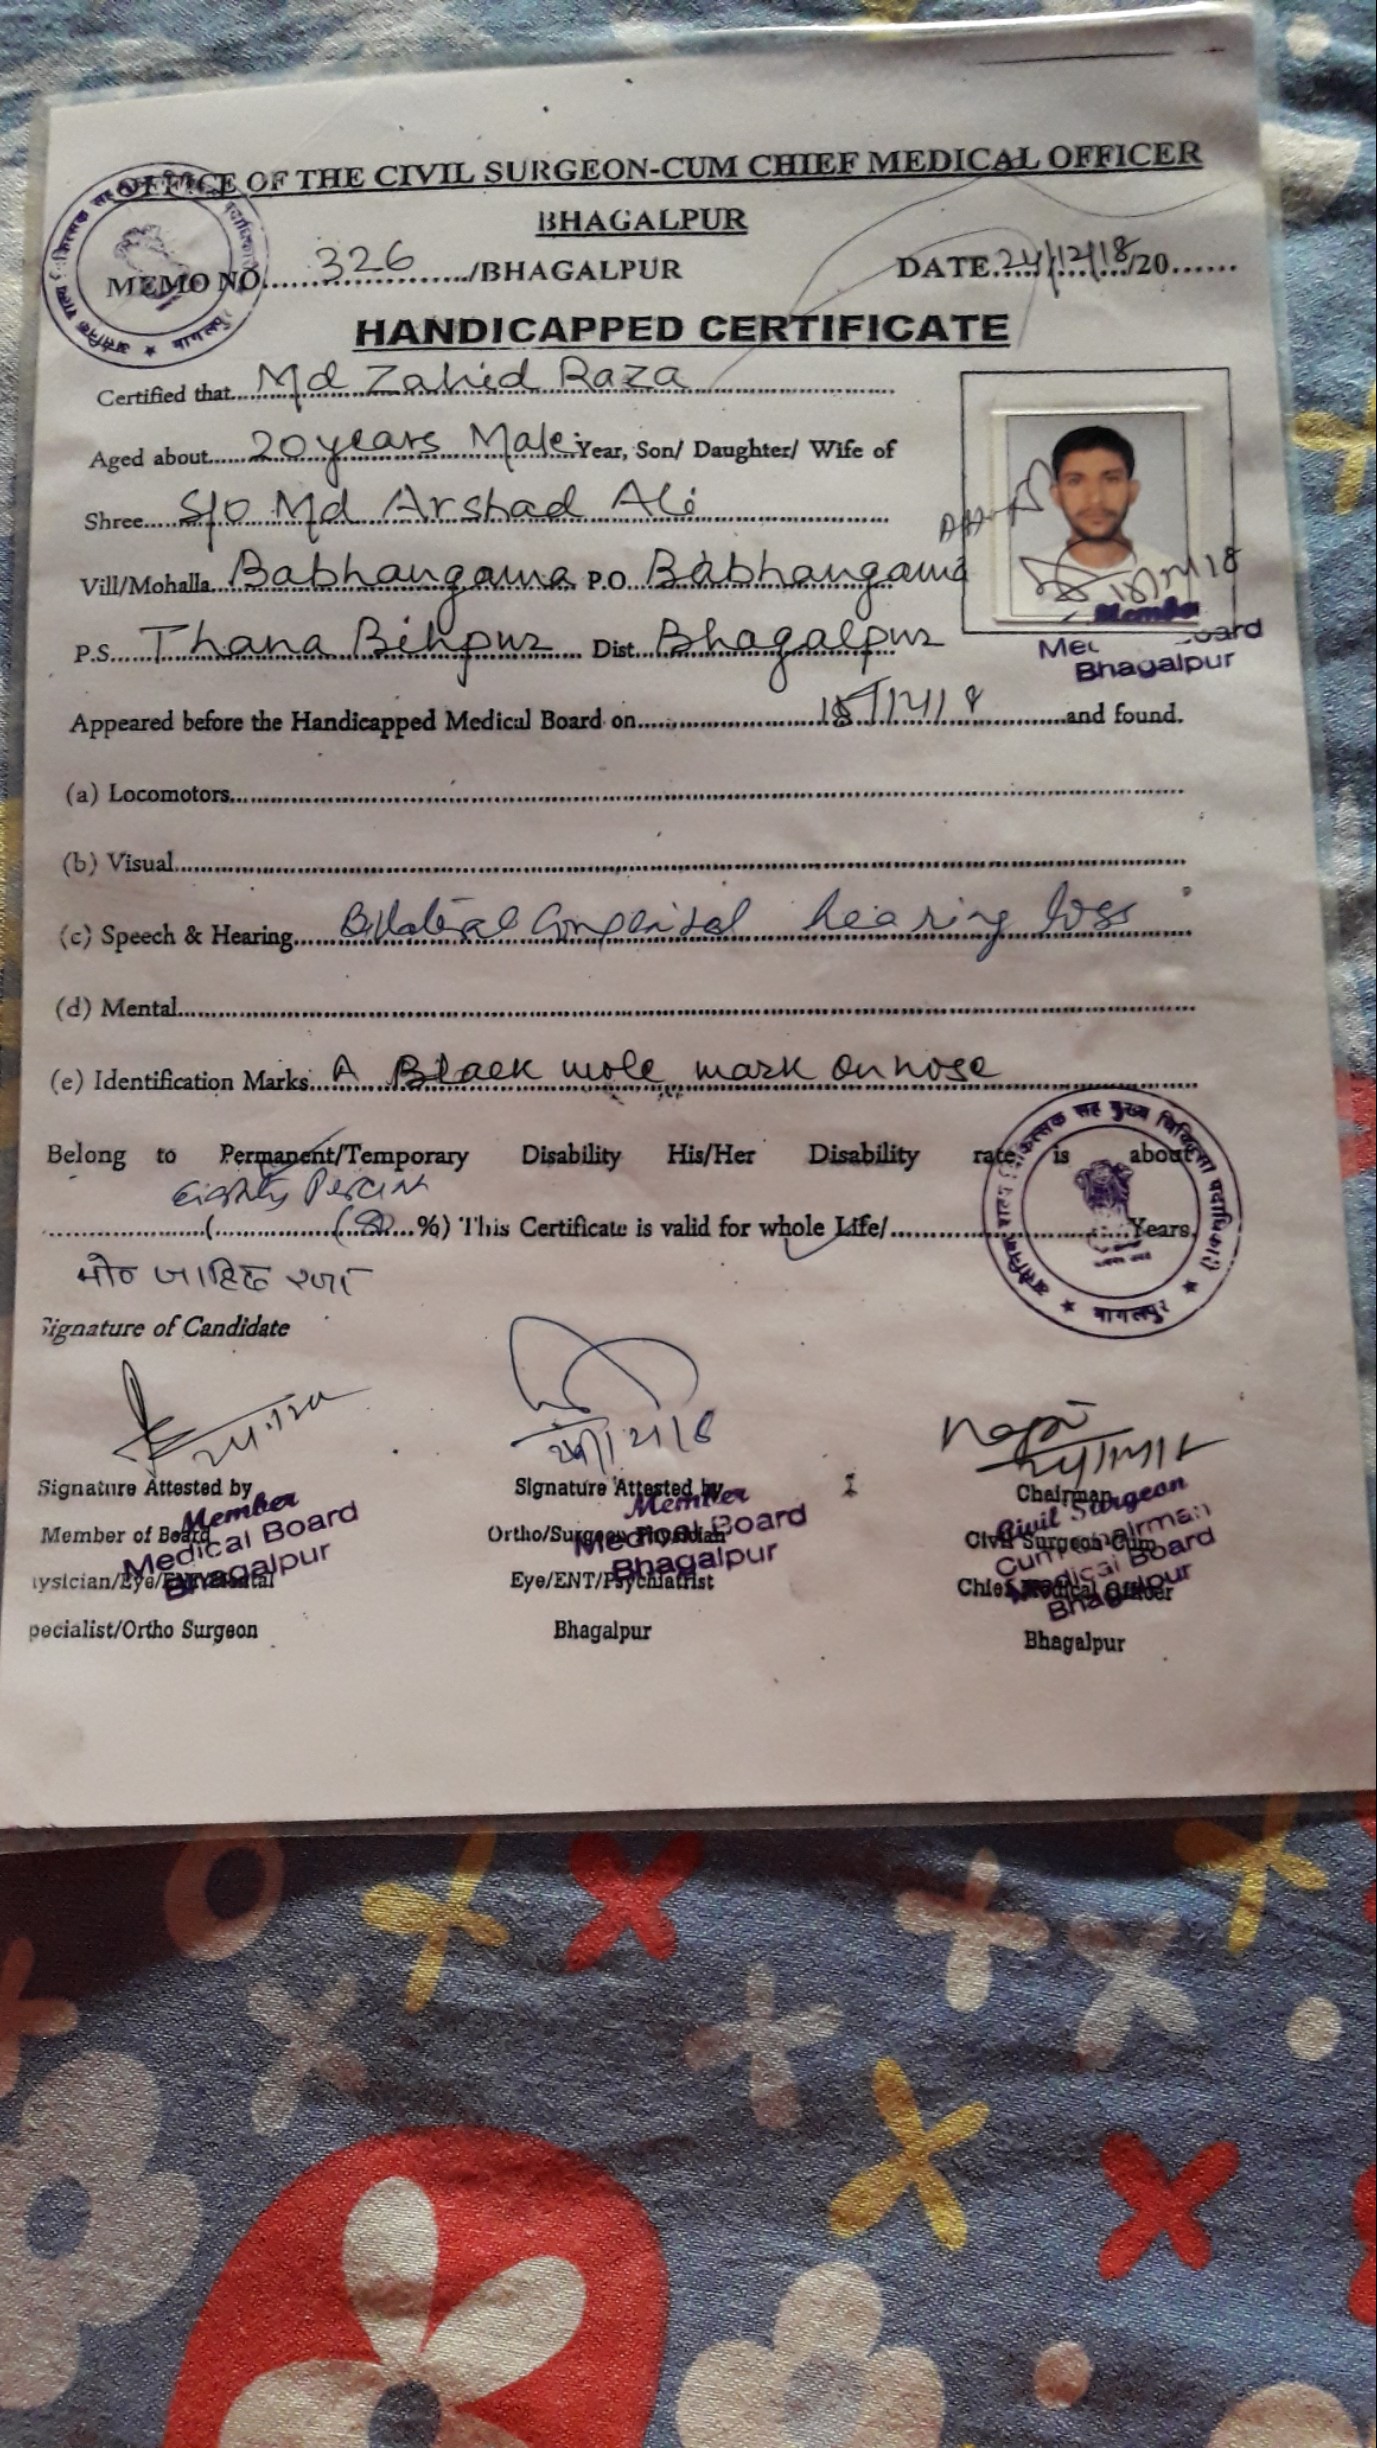 OFFICE OF THE CIVIL SURGEON-CUM CHIEF MEDICAL OFFICER
BHAGALPUR
MEMO NO.....326....../BHAGALPUR DATE 24/12/18/20......
HANDICAPPED CERTIFICATE
Certified that...Md Zahid Raza
Aged about...20 years Male Year, Son/ Daughter/ Wife of
Shree...S/o Md Arshad Ali
Vill/Mohalla...Babhangama P.O...Babhangama
P.S...Thana Bihpur...Dist...Bhagalpur
18/12/18
Member
Medical Board
Bhagalpur
Appeared before the Handicapped Medical Board on...18/12/18...and found.
(a) Locomotors...
(b) Visual...
(c) Speech & Hearing...Bilateral Congenital hearing loss
(d) Mental...
(e) Identification Marks...A Black mole mark on nose
Belong to Permanent/Temporary Disability His/Her Disability rate is about
Eighty Percent
......(......(80...%) This Certificate is valid for whole Life/......Years.
भागलपुर
मो० जाहिद रजा
Signature of Candidate
24/12/18
Signature Attested by Signature Attested by Chairman
Member of Board Ortho/Surgeon Physician Civil Surgeon-Cum
Member Medical Board Bhagalpur
Member Medical Board Bhagalpur
Civil Surgeon Cum Chairman Medical Board Bhagalpur
ysician/Eye/ENT/Mental Eye/ENT/Psychiatrist Chief Medical Officer
pecialist/Ortho Surgeon Bhagalpur Bhagalpur